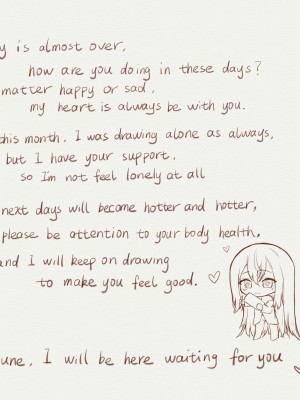 y is almost over,
how are you doing in these days?
matter happy or sad,
my heart is always be with you.
this month, I was drawing alone as always,
but I have your support,
so I'm not feel lonely at all
next days will become hotter and hotter,
please be attention to your body health,
and I will keep on drawing
to make you feel good.
une, I will be here waiting for you